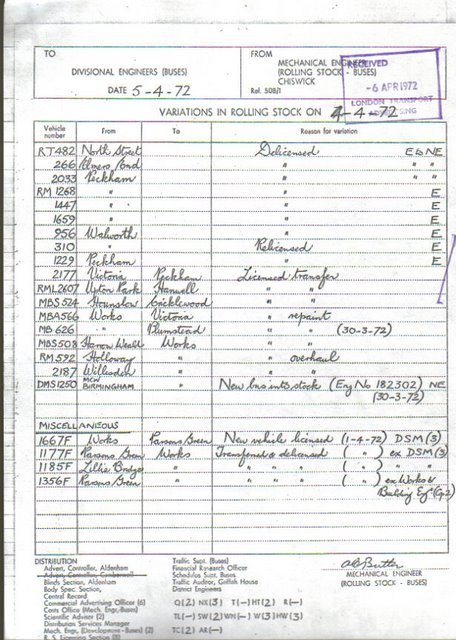 TO
DIVISIONAL ENGINEERS (BUSES)
DATE 5-4-72
FROM
MECHANICAL ENGINEER
(ROLLING STOCK - BUSES)
CHISWICK
Ref. 508/1
RECEIVED
-6 APR 1972
LONDON TRANSPORT
ADVERTISING
VARIATIONS IN ROLLING STOCK ON 4-4-72
Vehicle number From To Reason for variation
RT482 North Street Delicensed E to NE
266 Elmers End " " "
2033 Peckham " " "
RM 1268 " " E
1447 " " E
1659 " " E
956 Walworth " E
310 " Relicensed E
1229 Peckham " E
2177 Victoria Peckham Licensed transfer
RML2607 Upton Park Hanwell " "
MBS524 Hounslow Cricklewood " "
MBA566 Works Victoria " repaint
MB 626 " Plumstead " " (30-3-72)
MBS508 Harrow Weald Works " "
RM592 Holloway " " overhaul
2187 Willesden " " "
DMS1250 MCW BIRMINGHAM " New bus into stock (Eng No 182302) NE
(30-3-72)
MISCELLANEOUS
1667F Works Parsons Green New vehicle licensed (1-4-72) DSM (3)
1177F Parsons Green Works Transferred & delicensed ( " ) ex DSM (3)
1185F Lillie Bridge " " " ( " ) " "
1356F Parsons Green " " " ( " ) ex Works &
Building Engr (Gp2)
DISTRIBUTION
Advert. Controller, Aldenham
Advert. Controller, Camberwell
Blinds Section, Aldenham
Body Spec. Section,
Central Record
Commercial Advertising Officer (6)
Costs Office (Mech. Engr.-Buses)
Scientific Adviser (2)
Distribution Services Manager
Mech. Engr. (Development - Buses) (2)
R. S. Licensing Section (2)
Traffic Supt. (Buses)
Financial Research Officer
Schedules Supt. Buses
Traffic Auditor, Griffith House
District Engineers
Q(2) NX(3) T(—) HT(2) R(—)
TL(—) SW(2) WN(—) W(3) HW(3)
TC(2) AR(—)
MECHANICAL ENGINEER
(ROLLING STOCK - BUSES)